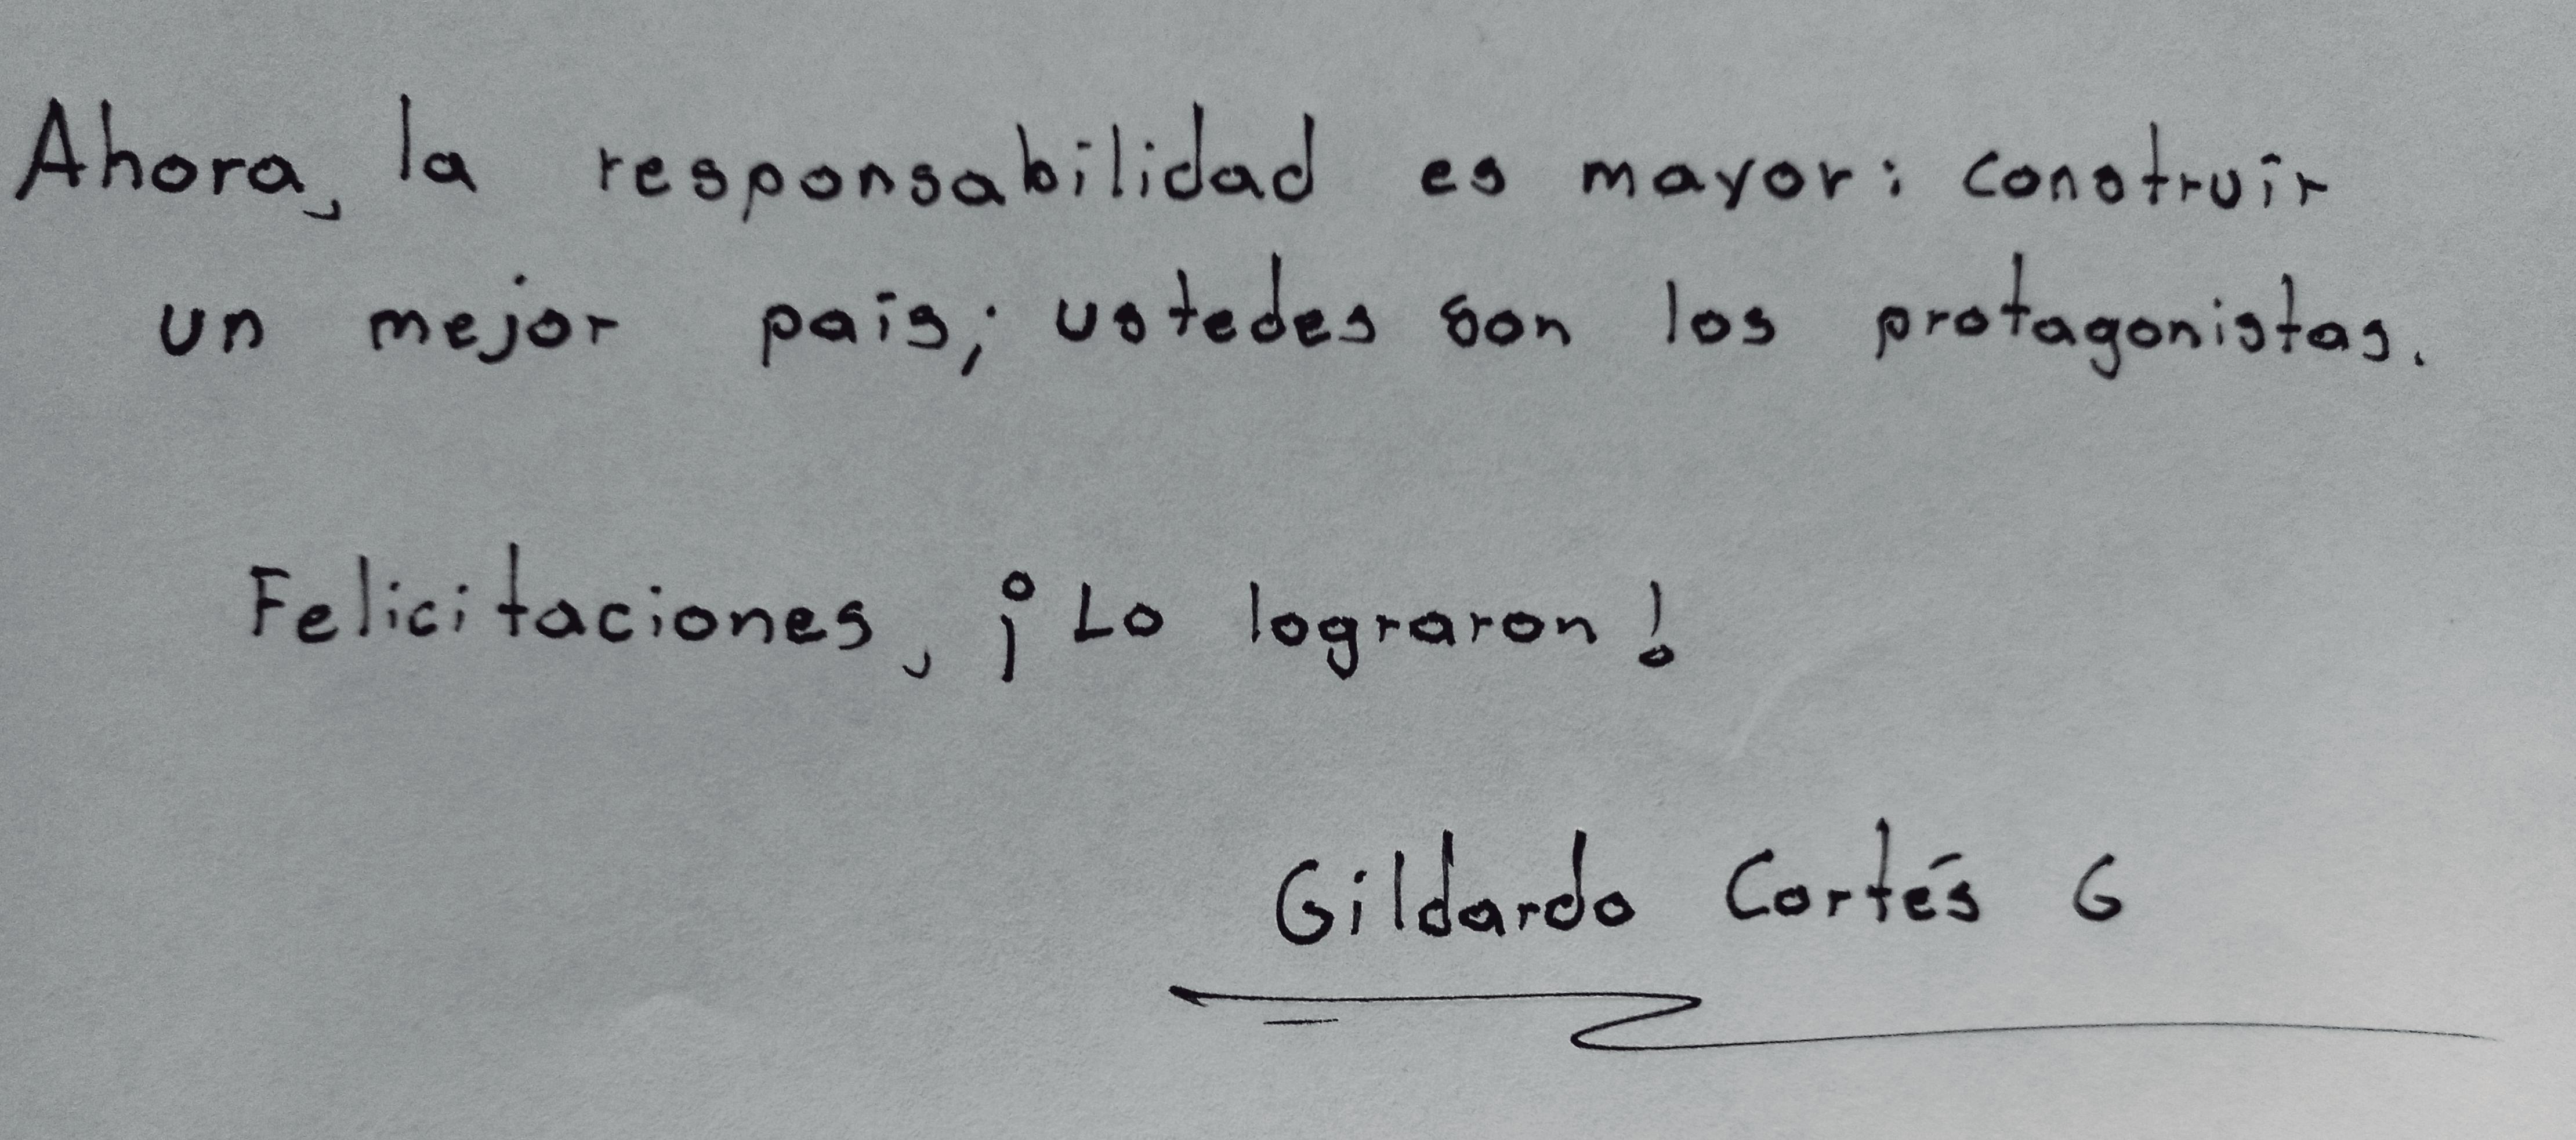 Ahora, la responsabilidad es mayor: construir
un mejor país; ustedes son los protagonistas.
Felicitaciones, ¡Lo lograron!
Gildardo Cortés G